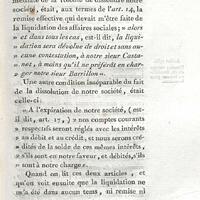 société, était, aux termes de l'art. 14, la
remise effective qui devait m'être faite de
la liquidation des affaires sociales; « alors
« et dans tous les cas, est-il dit, la liqui-
« dation sera dévolue de droit et sans au-
« cune contestation, à notre sieur Casta-
« net, à moins qu'il ne préfère en char-
« ger notre sieur Barrillon. »
Une autre condition inséparable du fait
de la dissolution de notre société, était
celle-ci:
« A l'expiration de notre société, (est-
il dit, art. 17,) « nos comptes courants
« respectifs seront réglés avec les intérêts
« au débit et au crédit, et nous serons cré-
« dités de la solde de ces mêmes intérêts,
« s'ils sont en notre faveur, et débités, s'ils
« sont à notre charge.
Quand on lit ces deux articles, et
qu'on voit ensuite que la liquidation ne
m'a été dans aucun tems, ni remise, ni